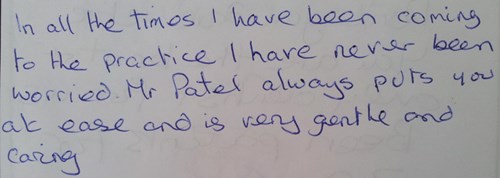 In all the times I have been coming
to the practice I have never been
worried. Mr Patel always puts you
at ease and is very gentle and
caring